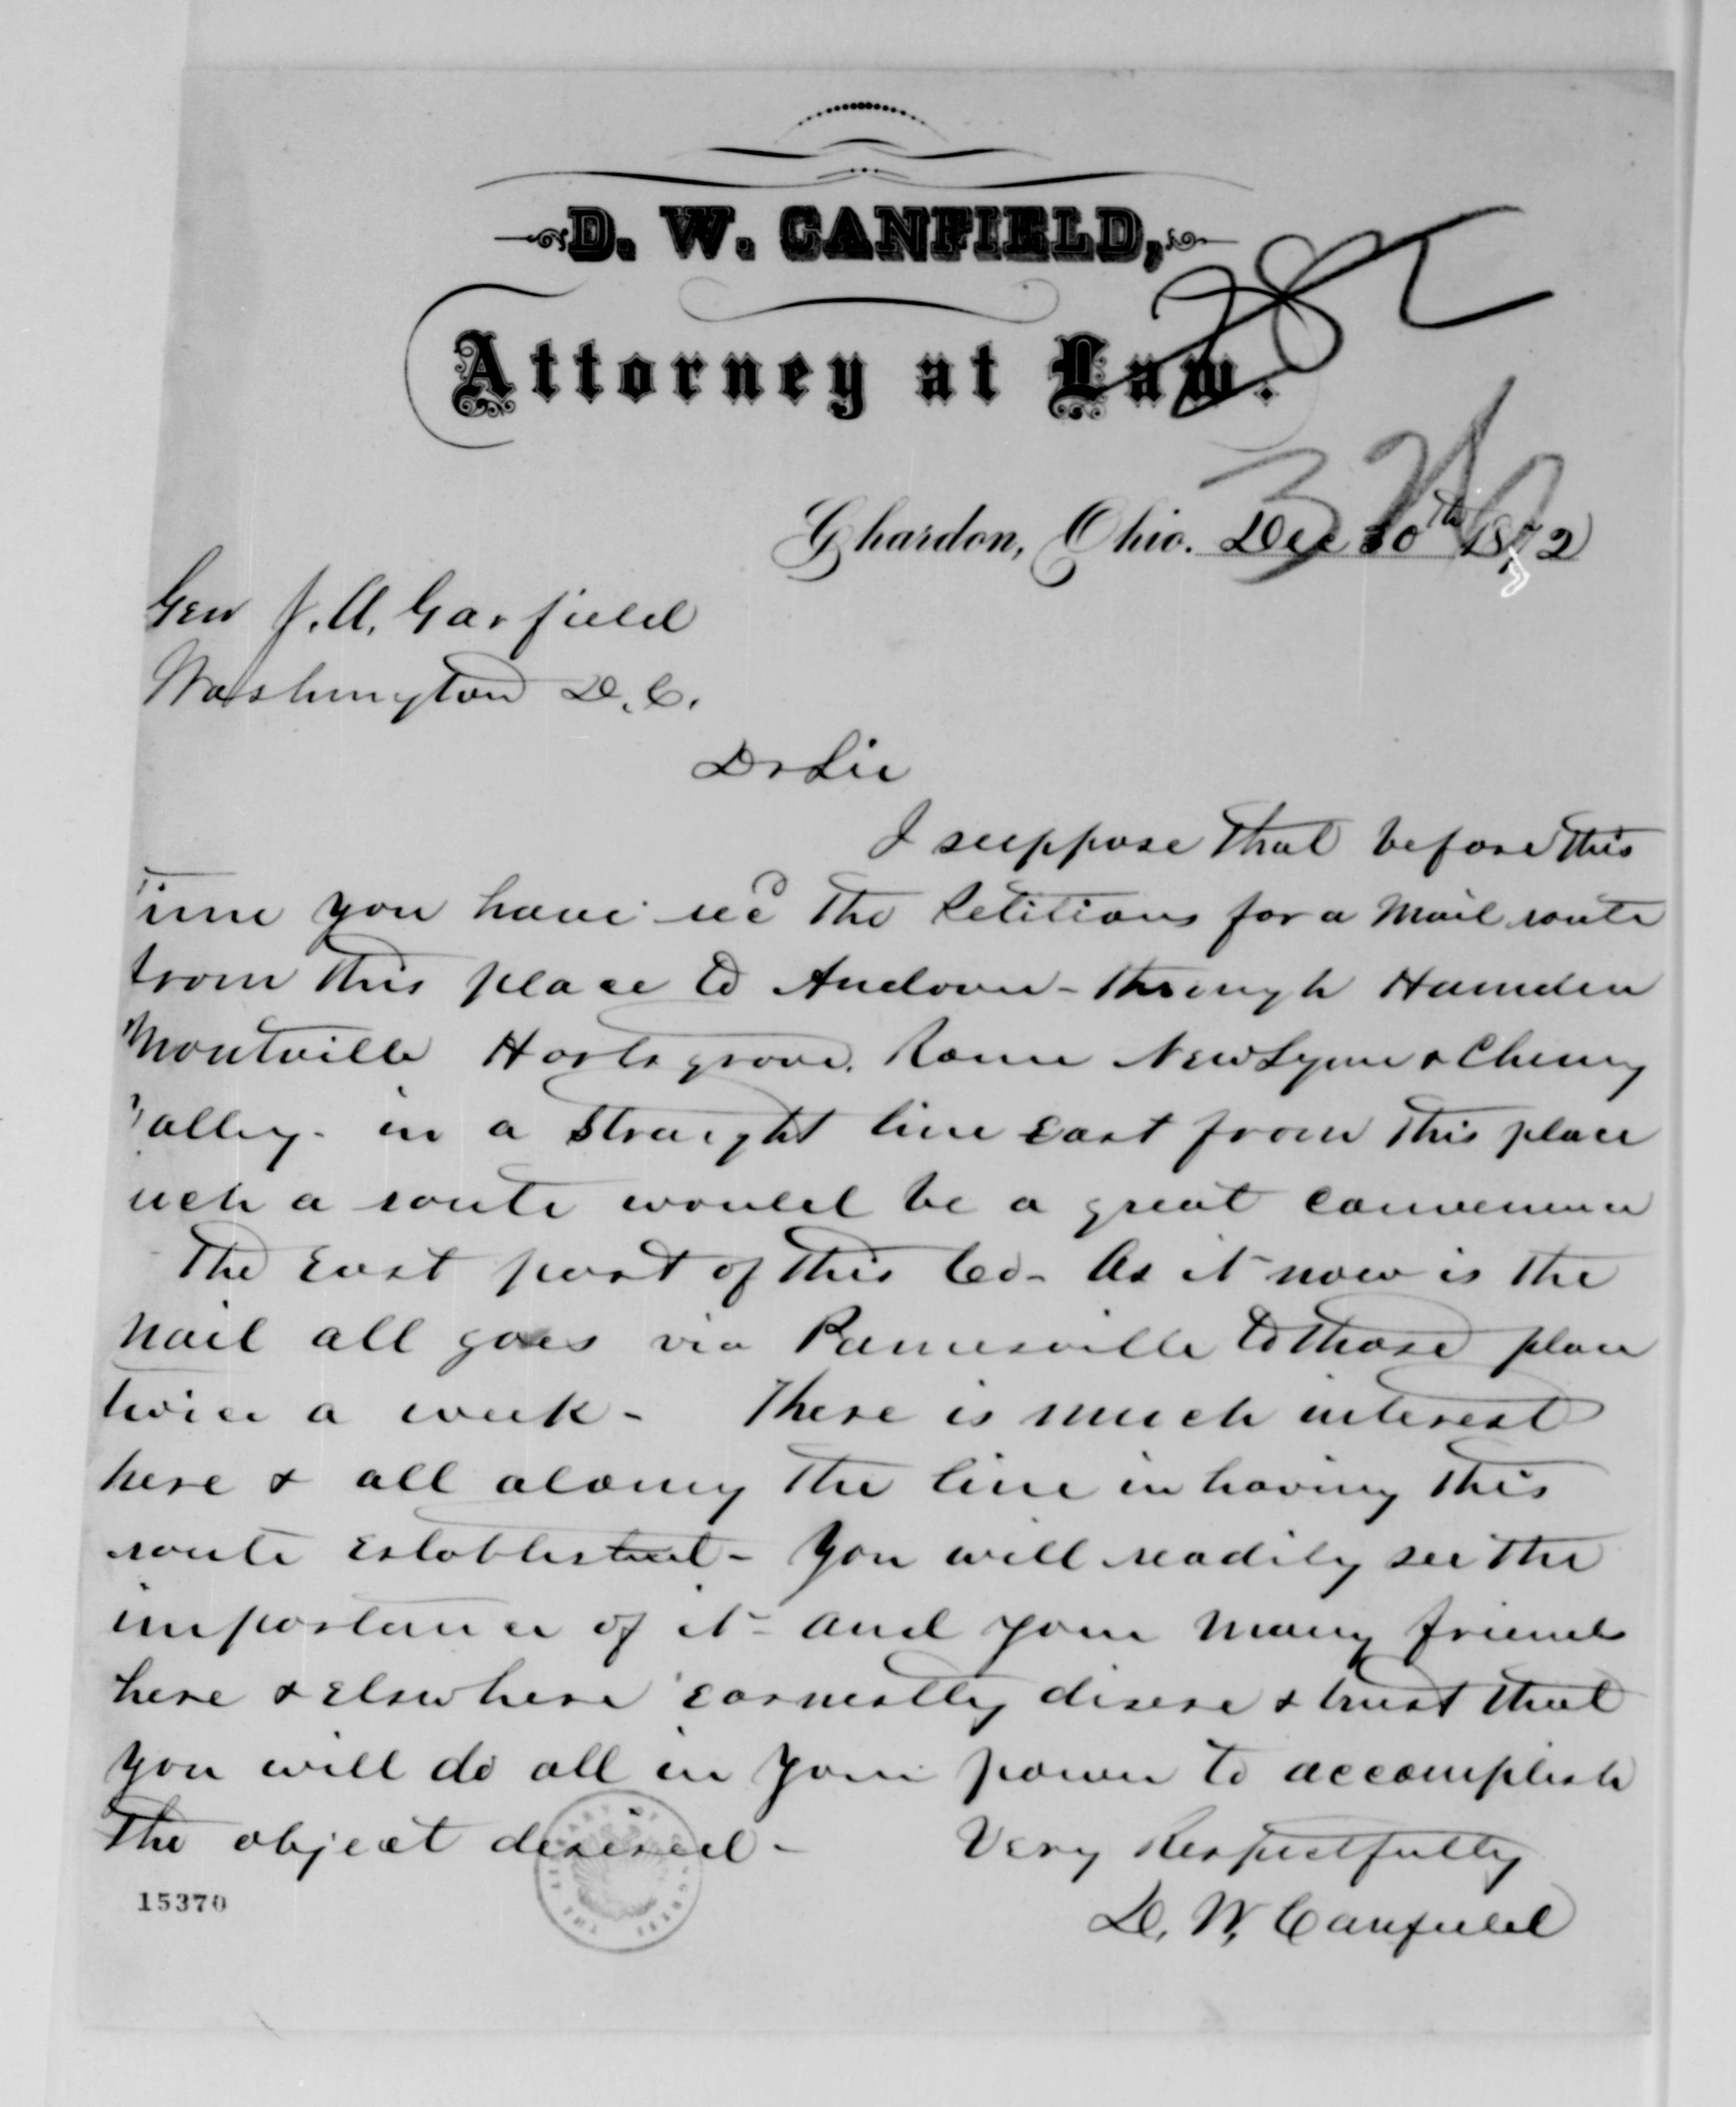 D. W. CANFIELD,
Attorney at Law.
Chardon, Ohio. Dec 30th 1872
Gen J. A. Garfield
Washington D. C.
Dr Sir
I suppose that before this
time you have recd the Petitions for a Mail route
from this place to Andover - through Hamden
Montville Hartsgrove, Rome New Lyme & Cherry
Valley - in a straight line East from this place
such a route would be a great convenience
The East part of this Co - As it now is the
Mail all goes via Painesville to those place
twice a week - There is much interest
here & all along the line in having this
route established - You will readily see the
importance of it - and your many friends
here & elsewhere earnestly desire & trust that
you will do all in your power to accomplish
the object desired - Very Respectfully
D. W. Canfield
15370